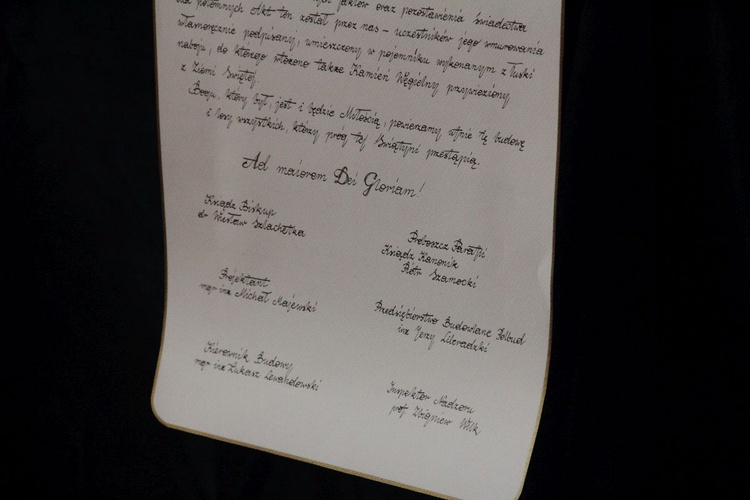 faktów oraz pozostawienia świadectwa
dla potomnych Akt ten został przez nas – uczestników jego wmurowania
własnoręcznie podpisany, umieszczony w pojemniku wykonanym z łuski
naboju, do którego włożono także Kamień Węgielny przywieziony
z Ziemi Świętej.
Bogu, który był, jest i będzie Miłością, powierzamy ufnie tę budowę
i losy wszystkich, którzy próg tej Świątyni przestąpią.
Ad maiorem Dei Gloriam!
Ksiądz Biskup
dr Wiesław Szlachetka
Proboszcz Parafii
Ksiądz Kanonik
Piotr Szamocki
Projektant
mgr inż Michał Majewski
Przedsiębiorstwo Budowlane Polbud
inż Jerzy Literadzki
Kierownik Budowy
mgr inż Łukasz Lewandowski
Inspektor Nadzoru
prof Zbigniew Wilk